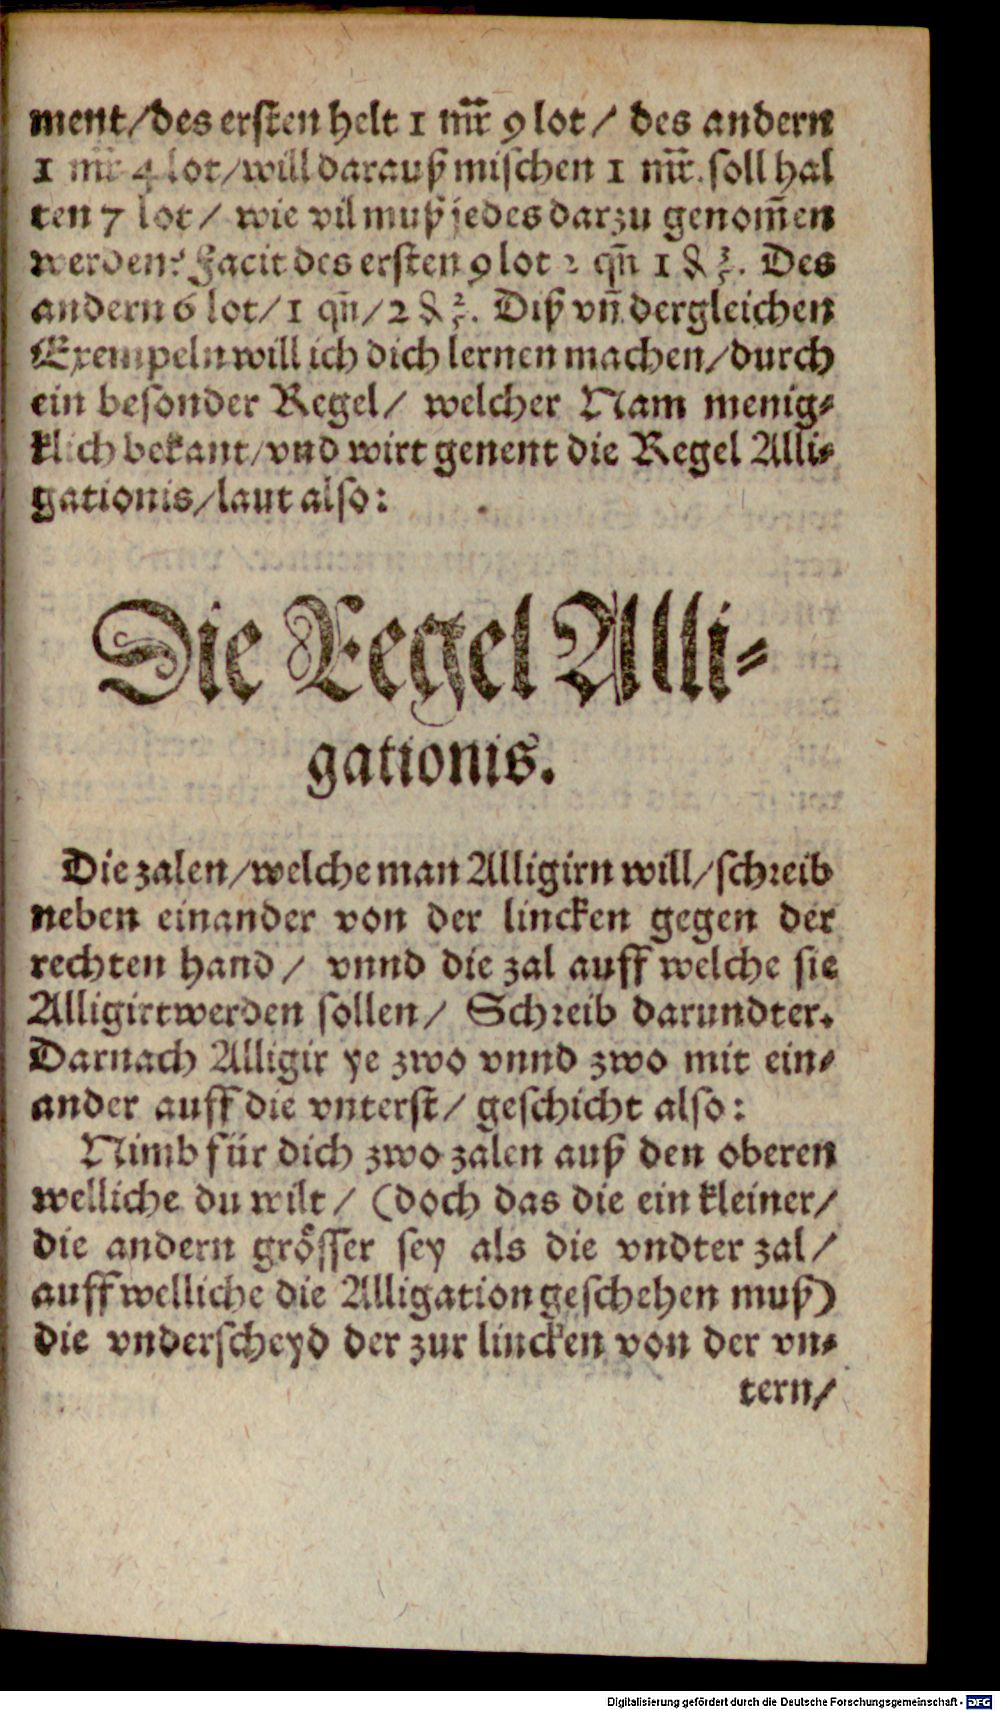 ment/des ersten helt 1 mr̃ 9 lot/ des andern
1 mr̃ 4 lot/will darauß mischen 1 mr̃. soll hal
ten 7 lot/ wie vil muß jedes darzu genom̃en
werden? Facit des ersten 9 lot 2 qñ 1 ₰ 3/5. Des
andern 6 lot/1 qñ/2 ₰ 2/5. Diß vñ dergleichen
Exempeln will ich dich lernen machen/durch
ein besonder Regel/ welcher Nam menig⸗
klich bekant/vnd wirt genent die Regel Alli⸗
gationis/laut also:
Die Regel Alli⸗
gationis.
Die zalen/welche man Alligirn will/schreib
neben einander von der lincken gegen der
rechten hand/ vnnd die zal auff welche sie
Alligirt werden sollen/ Schreib darundter.
Darnach Alligir ye zwo vnnd zwo mit ein⸗
ander auff die vnterst/ geschicht also:
Nimb für dich zwo zalen auß den oberen
welliche du wilt/ (doch das die ein kleiner/
die andern grösser sey als die vndter zal/
auff welliche die Alligation geschehen muß)
die vnderscheyd der zur lincken von der vn⸗
tern/
Digitalisierung gefördert durch die Deutsche Forschungsgemeinschaft - DFG